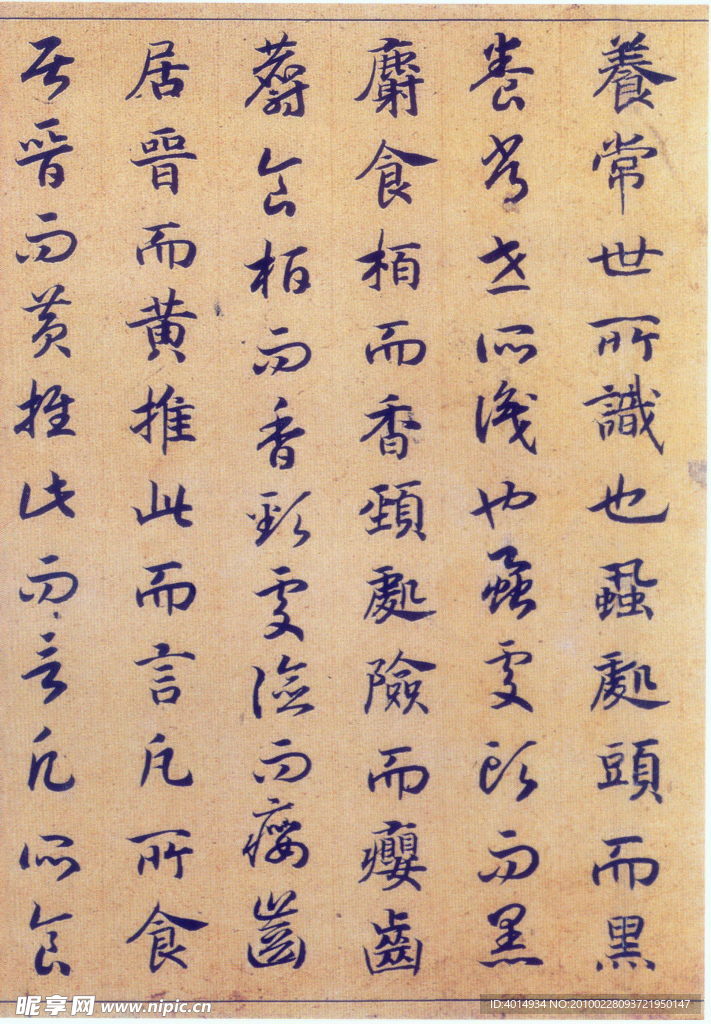 養常世所識也蝨處頭而黑
養常世所識也蝨處頭而黑
麝食柏而香頸處險而癭齒
麝食柏而香頸處險而癭齒
居晉而黃推此而言凡所食
居晉而黃推此而言凡所食
昵享网 www.nipic.cn
ID:4014934 NO:20100228093721950147